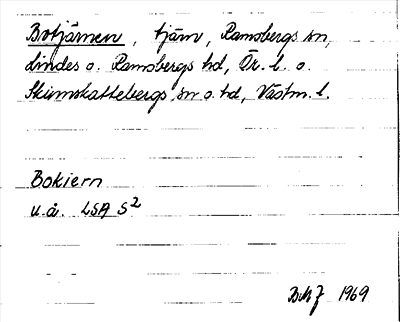 Botjärnen, tjärn, Ramsbergs sn,
Lindes o. Ramsbergs hd, Ör. l. o.
Skinnskattebergs sn o. hd, Västm. l.
Bokiern
u.å. LSA S2
1969